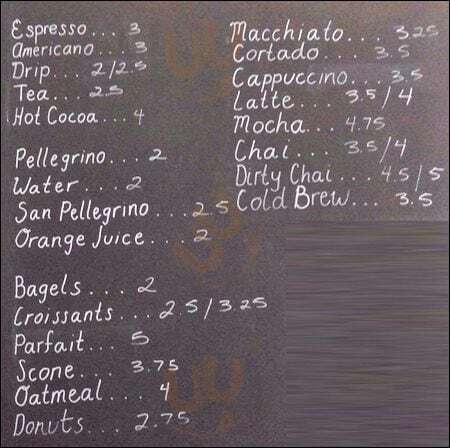 Espresso... 3
Americano... 3
Drip... 2/2.5
Tea.... 2.5
Hot Cocoa... 4
Pellegrino... 2
Water.... 2
San Pellegrino.... 2.5
Orange Juice... 2
Bagels.... 2
Croissants.... 2.5/3.25
Parfait... 5
Scone.... 3.75
Oatmeal.... 4
Donuts.... 2.75
Macchiato.... 3.25
Cortado.... 3.5
Cappuccino... 3.5
Latte.... 3.5/4
Mocha... 4.75
Chai.... 3.5/4
Dirty Chai.... 4.5/5
Cold Brew.... 3.5